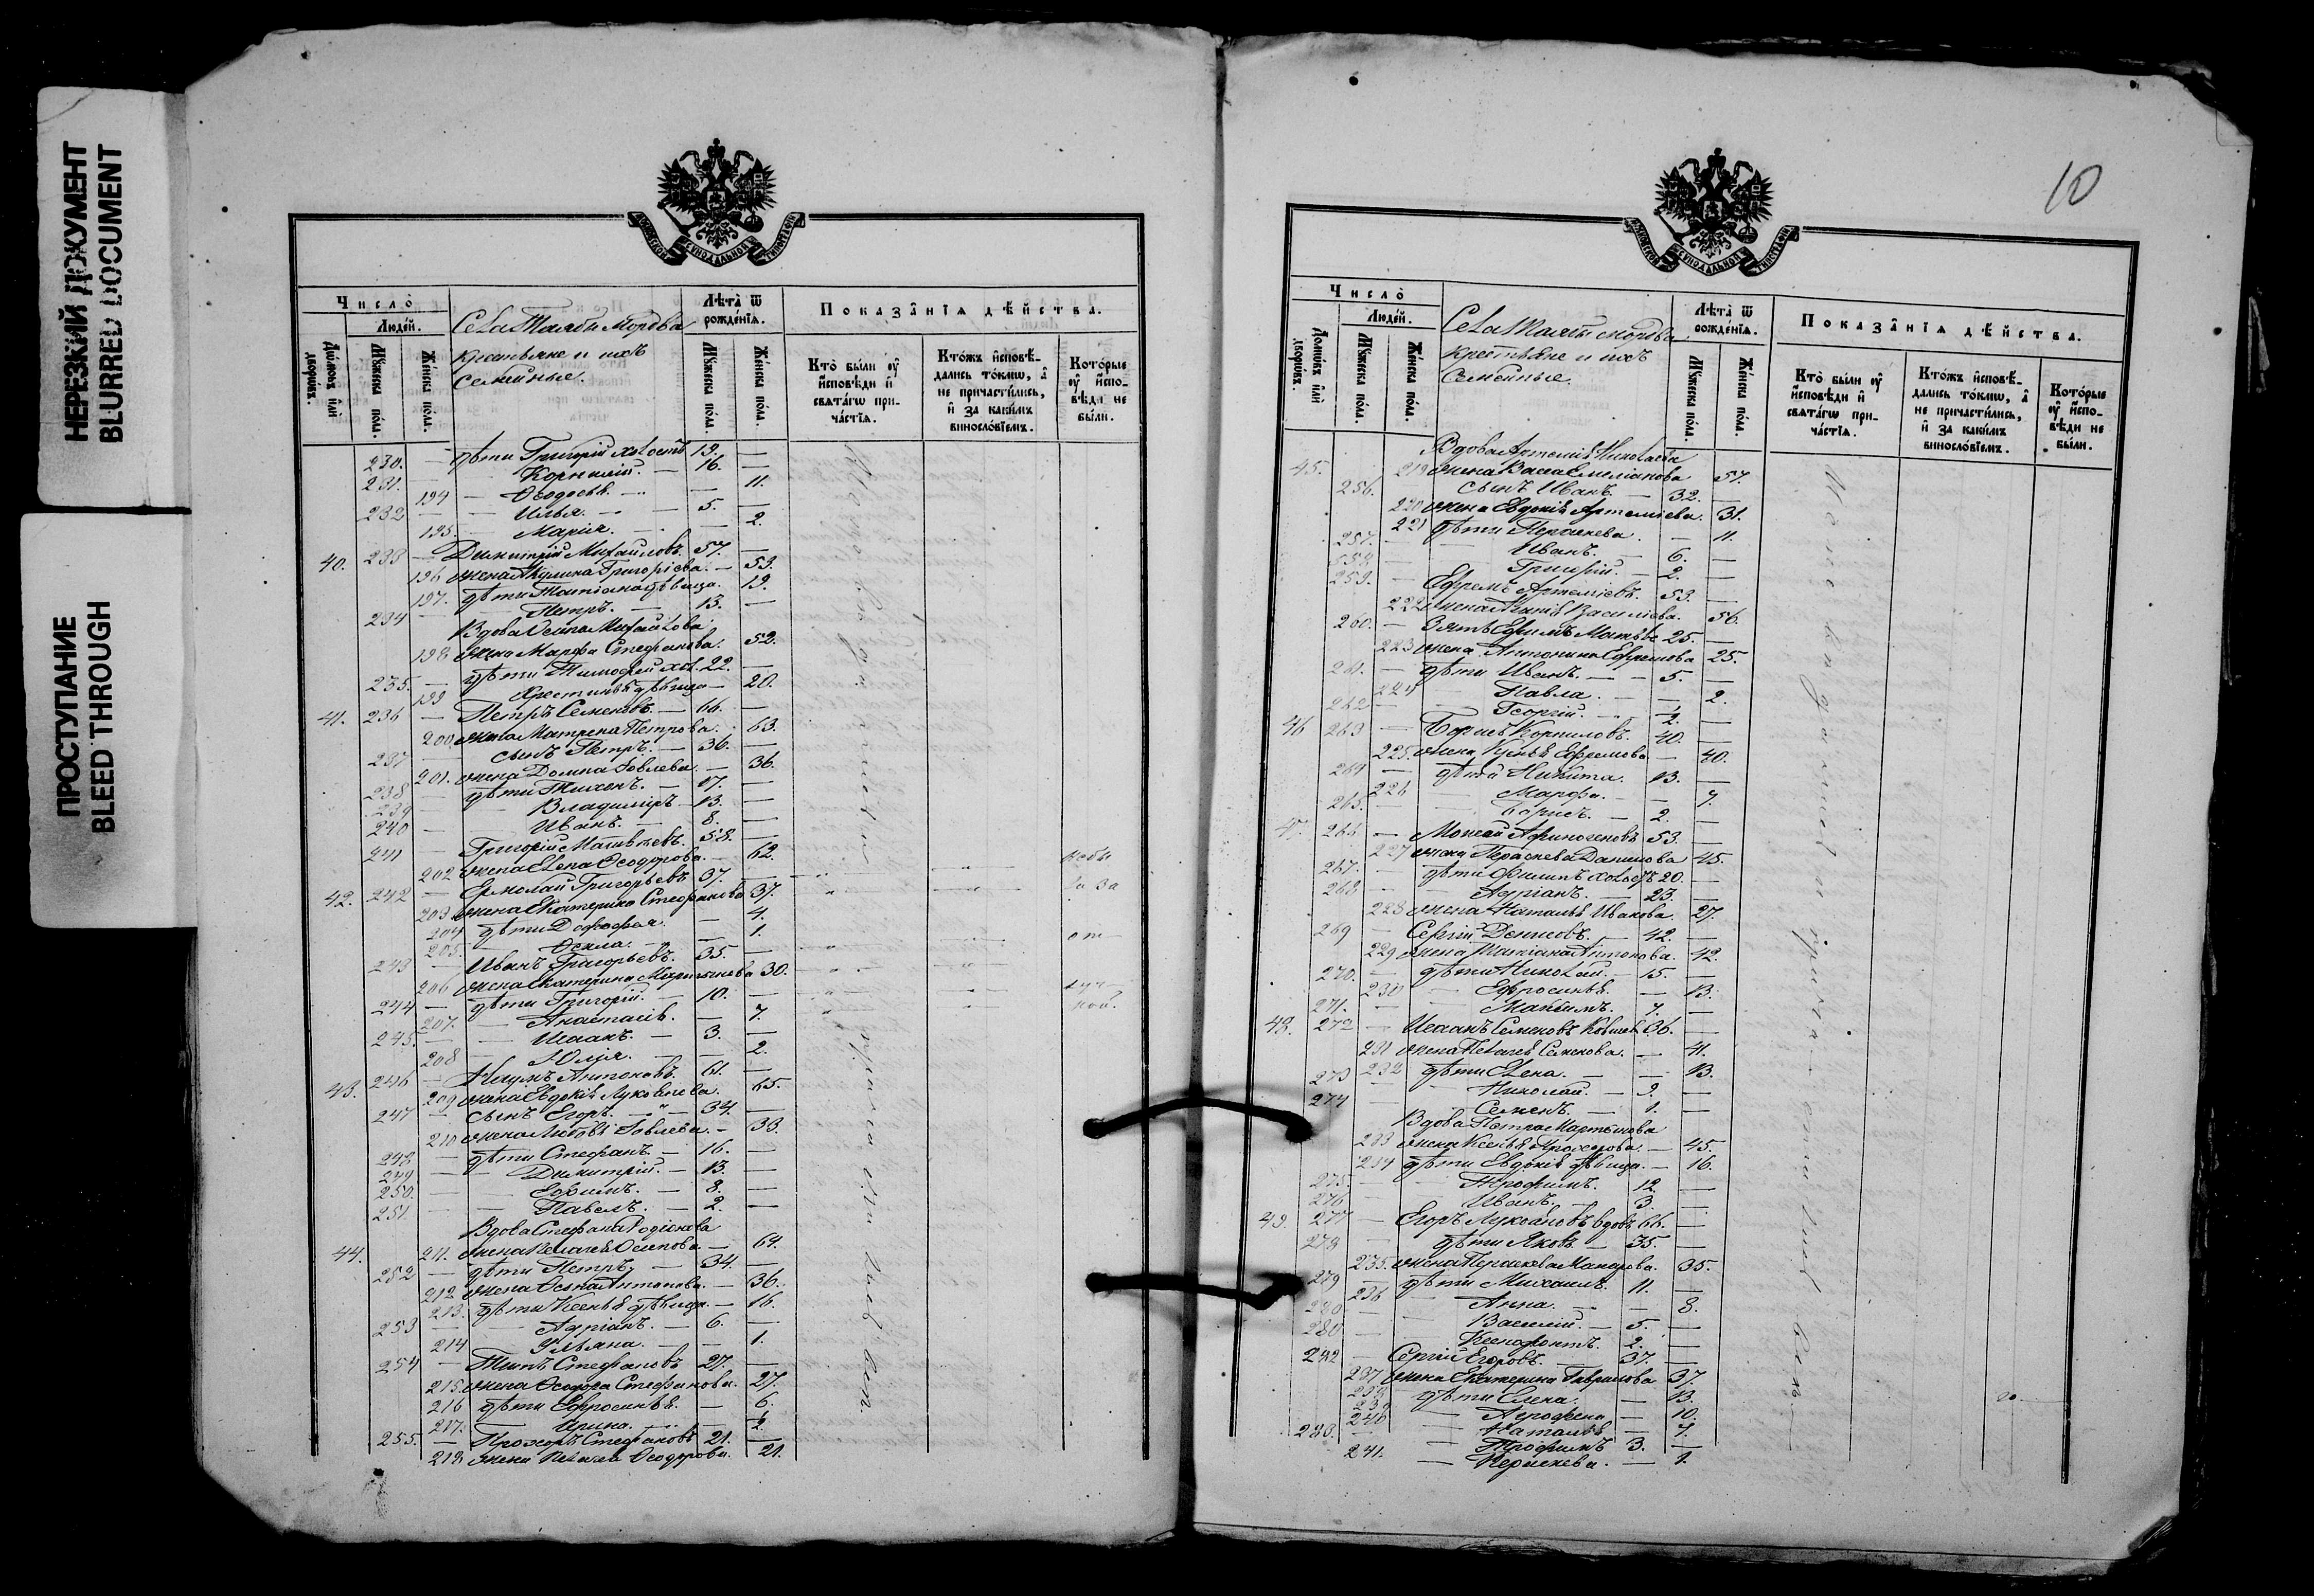 НЕРЕЗКИЙ ДОКУМЕНТ
BLURRED DOCUMENT
ПРОСТУПАНИЕ
BLEED THROUGH
Число̀
Люде́й.
Домѡ́въ и҆лѝ дворѡ́въ.
Мꙋ́жеска по́ла.
Же́нска по́ла.
Села Малой Мордва
крестьяне и ихъ
семейные.
Лѣ́та ѿ рожде́нїѧ.
Мꙋ́жеска по́ла.
Же́нска по́ла.
Показа̑нїѧ дѣ́йства.
Кто̀ бы́ли оу҆ и҆сповѣ́ди и҆ свѧта́гѡ прича́стїѧ.
Кто́жъ и҆сповѣ́дались то́кмѡ, а҆ не причасти́лись, и҆ за каки́мъ виносло́вїемъ.
Кото́рые оу҆ и҆сповѣ́ди не бы́ли.
230. — дѣти Григорій холостъ 19. —
231. — Корнилій. — 16. —
194 — Ѳеодосья. — 11.
232 — Илья. — 5. —
195. — Марія. — 2.
40. 233 — Димитрій Михайловъ. 57. —
196 жена Акулина Григоріева. — 53.
197. дѣти Татіана дѣвица. 19.
234 — Петръ. — 13. —
Вдова Осипа Михайлова
198 жена Марфа Стефанова. 52.
235. — дѣти Тимофей хол. 22. —
199 Христинья дѣвица — 20.
41. 236 — Петръ Семеновъ. — 66. —
200 жена Матрена Петрова. 63.
237 — сынъ Петръ. — 36. —
201. жена Домна Іовлева. — 36.
238 — дѣти Тихонъ. — 17. —
239 — Владиміръ — 13. —
240 — Иванъ. — 8. —
241 — Григорій Матвѣевъ. 58. —
202 жена Елена Ѳеодорова. — 62.
42. 242 — Ермолай Григорьевъ 37. —
203 жена Екатерина Стефанова 37.
204 дѣти Дорофея. — 4.
205. — Ѳекла. — 1.
243 — Иванъ Григорьевъ. 35. —
206 жена Екатерина Мартынова 30.
244 — дѣти Григорій. — 10. —
207. — Анастасія. — 7.
245. — Исаакъ. — 3. —
208 — Юлія. — 2.
43. 246 — Наумъ Антоновъ. 61. —
209 жена Евдокія Лукоянова. 65.
247 — сынъ Егоръ. — 34. —
210 жена Любовь Іовлева. — 33.
248 — дѣти Стефанъ. — 16. —
249 — Димитрій. — 13. —
250. — Ефимъ. — 8. —
251. — Павелъ. — 2. —
Вдова Стефана Родіонова
44. 211. жена Пелагея Осипова — 64.
252 — дѣти Петръ, — 34. —
212 жена Ѳекла Антонова. — 36.
213. дѣти Ксенья дѣвица. — 16.
253 — Адріанъ. — 6. —
214 Ульяна. — 1.
254 — Титъ Стефановъ 27. —
215. жена Ѳеодора Стефанова. 27.
216 дѣти Ефросинья. — 6.
217. — Ирина. — 2.
255. — Прохоръ Стефановъ 21. —
218 жена Пелагея Ѳеодорова. 21.
10
Число̀
Люде́й.
Домѡ́въ и҆лѝ дворѡ́въ.
Мꙋ́жеска по́ла.
Же́нска по́ла.
Села Малой Мордва
крестьяне и ихъ
семейные
Лѣ́та ѿ рожде́нїѧ.
Мꙋ́жеска по́ла.
Же́нска по́ла.
Показа̑нїѧ дѣ́йства.
Кто̀ бы́ли оу҆ и҆сповѣ́ди и҆ свѧта́гѡ прича́стїѧ.
Кто́жъ и҆сповѣ́дались то́кмѡ, а҆ не причасти́лись, и҆ за каки́мъ виносло́вїемъ.
Кото́рые оу҆ и҆сповѣ́ди не бы́ли.
Вдова Артемія Николаева
45. 219 жена Васса Емеліанова 57.
256. сынъ Иванъ. — 32. —
220 жена Евдокія Артеміева. 31.
221 дѣти Параскева. — 11.
257. — Иванъ. — 6. —
258 — Григорій. — 2. —
259. — Ефремъ Артеміевъ. 53. —
222 жена Василіева. 56.
260. — Зять Ефимъ Матвѣе 25. —
223 жена Антонина Ефремова 25.
261. — дѣти Иванъ. — 5. —
224 Павла. — 2.
262 — Георгій. — 2. —
46 263 — Борисъ Корниловъ. 40. —
225. жена Ефремова — 40.
264 — дѣти Никита. 13. —
226 — Марфа. — 7.
265. — Борисъ. — 2. —
47. 266 — Моисей Афиногеновъ 53. —
227 жена Параскева Данилова 45.
267. — дѣти Филипъ холостъ 20. —
268 — Адріанъ. — 23. —
228 жена Наталья Иванова. 27.
269 — Сергій Денисовъ. — 42. —
229 жена Татіана Антонова. 42.
270. — дѣти Николай. — 15. —
230 — Ефросинья. — 13.
271. — Максимъ. 7. —
48. 272 — Исаакъ Семеновъ 36. —
231 жена Пелагея Семенова. — 41.
232 дѣти Елена. — 13.
273 — Николай. — 9. —
274 — Семенъ. — 1. —
Вдова Петра Мартынова
233 жена Ксенья Прохорова. — 45.
234 дѣти Евдокія дѣвица. — 16.
275. — Трофимъ. 12. —
276 — Иванъ. — 3 —
49. 277 — Егоръ Лукояновъ вдовъ 66. —
278 — дѣти Яковъ — 35. —
235. жена Параскева Макарова. 35.
279 — дѣти Михаилъ. 11. —
236 — Анна. — 8.
280 — Василій. — 5. —
280 — Ксенофонтъ. 2. —
282 — Сергій Егоровъ. — 37. —
237 жена Екатерина Гаврилова 37.
238 дѣти Елена. — 13.
239 — Агрофена — 10.
240 — Наталья — 7.
283. — Трофимъ 3. —
241. — Параскева. — 1.